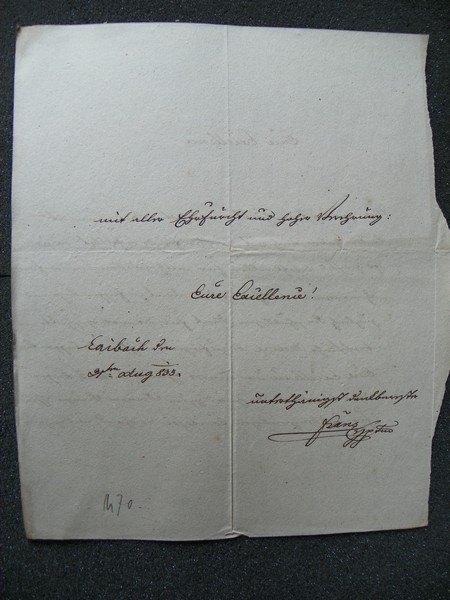 mit aller Ehrfurcht und hoher Verehrung:
Eure Excellence!
Laibach den
31ten Aug 833.
unterthänigst
Franz